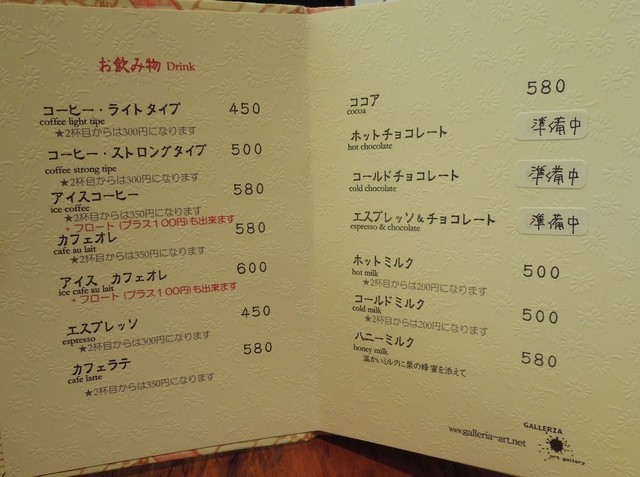 お飲み物 Drink
コーヒー・ライトタイプ 450
coffee light tipe
★2杯目からは300円になります
コーヒー・ストロングタイプ 500
coffee strong tipe
★2杯目からは300円になります
アイスコーヒー 580
ice coffee
★2杯目からは350円になります
+ フロート (プラス100円)も出来ます
カフェオレ 580
cafe au lait
★2杯目からは350円になります
アイス カフェオレ 600
ice cafe au lait
+ フロート (プラス100円)も出来ます
エスプレッソ 450
espresso
★2杯目からは300円になります
カフェラテ 580
cafe latte
★2杯目からは350円になります
ココア 580
cocoa
ホットチョコレート 準備中
hot chocolate
コールドチョコレート 準備中
cold chocolate
エスプレッソ&チョコレート 準備中
espresso & chocolate
ホットミルク 500
hot milk
★2杯目からは200円になります
コールドミルク 500
cold milk
★2杯目からは200円になります
ハニーミルク 580
honey milk
温かいミルクに栗の蜂蜜を添えて
www.galleria-art.net
GALLERIA
art gallery